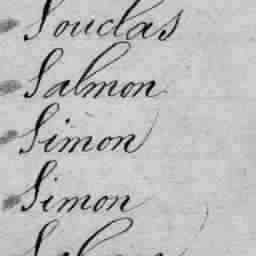 Souclas
Salmon
Simon
Simon